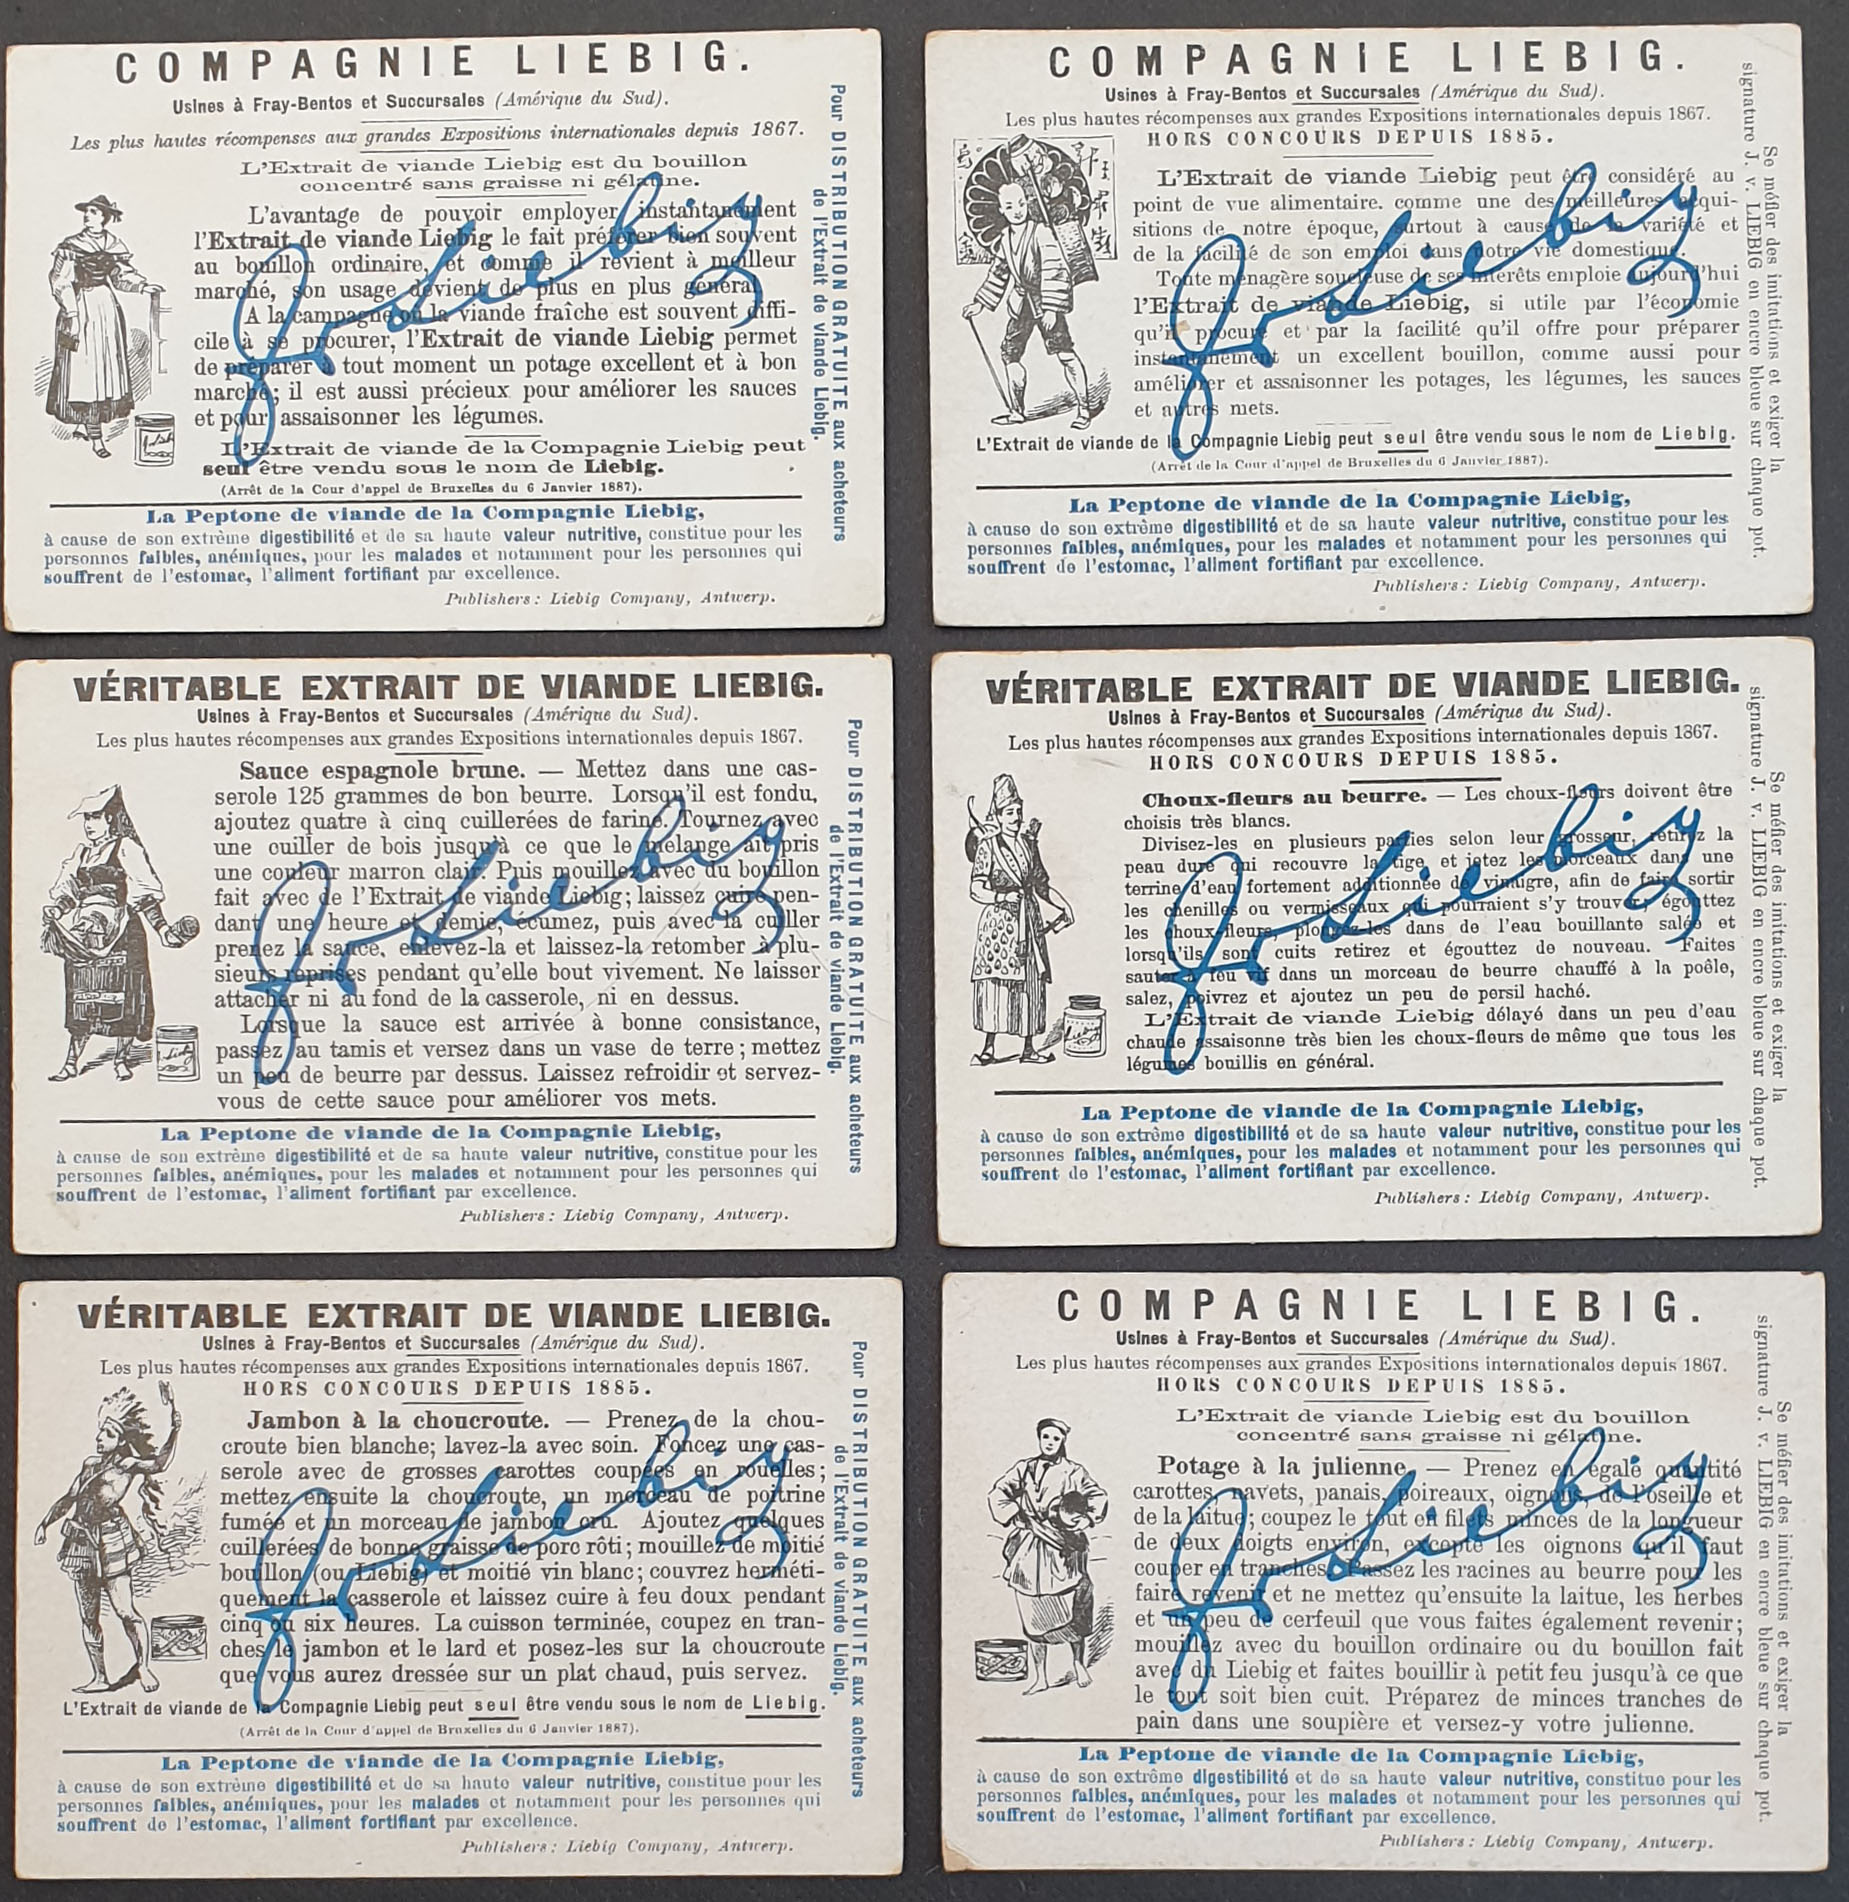 COMPAGNIE LIEBIG.
Usines à Fray-Bentos et Succursales (Amérique du Sud).
Les plus hautes récompenses aux grandes Expositions internationales depuis 1867.
L'Extrait de viande Liebig est du bouillon
concentré sans graisse ni gélatine.
L'avantage de pouvoir employer instantanément
l'Extrait de viande Liebig le fait préférer bien souvent
au bouillon ordinaire, et comme il revient à meilleur
marché, son usage devient de plus en plus général.
A la campagne où la viande fraîche est souvent diffi-
cile à se procurer, l'Extrait de viande Liebig permet
de préparer à tout moment un potage excellent et à bon
marché; il est aussi précieux pour améliorer les sauces
et pour assaisonner les légumes.
L'Extrait de viande de la Compagnie Liebig peut
seul être vendu sous le nom de Liebig.
(Arrêt de la Cour d'appel de Bruxelles du 6 Janvier 1887).
La Peptone de viande de la Compagnie Liebig,
à cause de son extrême digestibilité et de sa haute valeur nutritive, constitue pour les
personnes faibles, anémiques, pour les malades et notamment pour les personnes qui
souffrent de l'estomac, l'aliment fortifiant par excellence.
Publishers: Liebig Company, Antwerp.
Pour DISTRIBUTION GRATUITE aux acheteurs
de l'Extrait de viande Liebig.
JvLiebig
COMPAGNIE LIEBIG.
Usines à Fray-Bentos et Succursales (Amérique du Sud).
Les plus hautes récompenses aux grandes Expositions internationales depuis 1867.
HORS CONCOURS DEPUIS 1885.
L'Extrait de viande Liebig peut être considéré au
point de vue alimentaire. comme une des meilleures acqui-
sitions de notre époque, surtout à cause de la variété et
de la facilité de son emploi dans notre vie domestique.
Toute ménagère soucieuse de ses intérêts emploie aujourd'hui
l'Extrait de viande Liebig, si utile par l'économie
qu'il procure et par la facilité qu'il offre pour préparer
instantanément un excellent bouillon, comme aussi pour
améliorer et assaisonner les potages, les légumes, les sauces
et autres mets.
L'Extrait de viande de la Compagnie Liebig peut seul être vendu sous le nom de Liebig.
(Arrêt de la Cour d'appel de Bruxelles du 6 Janvier 1887).
La Peptone de viande de la Compagnie Liebig,
à cause de son extrême digestibilité et de sa haute valeur nutritive, constitue pour les
personnes faibles, anémiques, pour les malades et notamment pour les personnes qui
souffrent de l'estomac, l'aliment fortifiant par excellence.
Publishers: Liebig Company, Antwerp.
Se méfier des imitations et exiger la
signature J. v. LIEBIG en encre bleue sur chaque pot.
JvLiebig
VÉRITABLE EXTRAIT DE VIANDE LIEBIG.
Usines à Fray-Bentos et Succursales (Amérique du Sud).
Les plus hautes récompenses aux grandes Expositions internationales depuis 1867.
Sauce espagnole brune. — Mettez dans une cas-
serole 125 grammes de bon beurre. Lorsqu'il est fondu,
ajoutez quatre à cinq cuillerées de farine. Tournez avec
une cuiller de bois jusqu'à ce que le mélange ait pris
une couleur marron clair. Puis mouillez avec du bouillon
fait avec de l'Extrait de viande Liebig; laissez cuire pen-
dant une heure et demie, écumez, puis avec la cuiller
prenez la sauce, enlevez-la et laissez-la retomber à plu-
sieurs reprises pendant qu'elle bout vivement. Ne laisser
attacher ni au fond de la casserole, ni en dessus.
Lorsque la sauce est arrivée à bonne consistance,
passez au tamis et versez dans un vase de terre; mettez
un peu de beurre par dessus. Laissez refroidir et servez-
vous de cette sauce pour améliorer vos mets.
La Peptone de viande de la Compagnie Liebig,
à cause de son extrême digestibilité et de sa haute valeur nutritive, constitue pour les
personnes faibles, anémiques, pour les malades et notamment pour les personnes qui
souffrent de l'estomac, l'aliment fortifiant par excellence.
Publishers: Liebig Company, Antwerp.
Pour DISTRIBUTION GRATUITE aux acheteurs
de l'Extrait de viande Liebig.
JvLiebig
VÉRITABLE EXTRAIT DE VIANDE LIEBIG.
Usines à Fray-Bentos et Succursales (Amérique du Sud).
Les plus hautes récompenses aux grandes Expositions internationales depuis 1867.
HORS CONCOURS DEPUIS 1885.
Choux-fleurs au beurre. — Les choux-fleurs doivent être
choisis très blancs.
Divisez-les en plusieurs parties selon leur grosseur, retirez la
peau dure qui recouvre la tige et jetez les morceaux dans une
terrine d'eau fortement additionnée de vinaigre, afin de faire sortir
les chenilles ou vermisseaux qui pourraient s'y trouver, égouttez
les choux-fleurs, plongez-les dans de l'eau bouillante salée et
lorsqu'ils sont cuits retirez et égouttez de nouveau. Faites
sauter à feu vif dans un morceau de beurre chauffé à la poêle,
salez, poivrez et ajoutez un peu de persil haché.
L'Extrait de viande Liebig délayé dans un peu d'eau
chaude assaisonne très bien les choux-fleurs de même que tous les
légumes bouillis en général.
La Peptone de viande de la Compagnie Liebig,
à cause de son extrême digestibilité et de sa haute valeur nutritive, constitue pour les
personnes faibles, anémiques, pour les malades et notamment pour les personnes qui
souffrent de l'estomac, l'aliment fortifiant par excellence.
Publishers: Liebig Company, Antwerp.
Se méfier des imitations et exiger la
signature J. v. LIEBIG en encre bleue sur chaque pot.
JvLiebig
VÉRITABLE EXTRAIT DE VIANDE LIEBIG.
Usines à Fray-Bentos et Succursales (Amérique du Sud).
Les plus hautes récompenses aux grandes Expositions internationales depuis 1867.
HORS CONCOURS DEPUIS 1885.
Jambon à la choucroute. — Prenez de la chou-
croute bien blanche; lavez-la avec soin. Foncez une cas-
serole avec de grosses carottes coupées en rouelles;
mettez ensuite la choucroute, un morceau de poitrine
fumée et un morceau de jambon cru. Ajoutez quelques
cuillerées de bonne graisse de porc rôti; mouillez de moitié
bouillon (ou Liebig) et moitié vin blanc; couvrez herméti-
quement la casserole et laissez cuire à feu doux pendant
cinq ou six heures. La cuisson terminée, coupez en tran-
ches le jambon et le lard et posez-les sur la choucroute
que vous aurez dressée sur un plat chaud, puis servez.
L'Extrait de viande de la Compagnie Liebig peut seul être vendu sous le nom de Liebig.
(Arrêt de la Cour d'appel de Bruxelles du 6 Janvier 1887).
La Peptone de viande de la Compagnie Liebig,
à cause de son extrême digestibilité et de sa haute valeur nutritive, constitue pour les
personnes faibles, anémiques, pour les malades et notamment pour les personnes qui
souffrent de l'estomac, l'aliment fortifiant par excellence.
Publishers: Liebig Company, Antwerp.
Pour DISTRIBUTION GRATUITE aux acheteurs
de l'Extrait de viande Liebig.
JvLiebig
COMPAGNIE LIEBIG.
Usines à Fray-Bentos et Succursales (Amérique du Sud).
Les plus hautes récompenses aux grandes Expositions internationales depuis 1867.
HORS CONCOURS DEPUIS 1885.
L'Extrait de viande Liebig est du bouillon
concentré sans graisse ni gélatine.
Potage à la julienne. — Prenez en égale quantité
carottes, navets, panais, poireaux, oignons, de l'oseille et
de la laitue; coupez le tout en filets minces de la longueur
de deux doigts environ, excepté les oignons qu'il faut
couper en tranches. Passez les racines au beurre pour les
faire revenir et ne mettez qu'ensuite la laitue, les herbes
et un peu de cerfeuil que vous faites également revenir;
mouillez avec du bouillon ordinaire ou du bouillon fait
avec du Liebig et faites bouillir à petit feu jusqu'à ce que
le tout soit bien cuit. Préparez de minces tranches de
pain dans une soupière et versez-y votre julienne.
La Peptone de viande de la Compagnie Liebig,
à cause de son extrême digestibilité et de sa haute valeur nutritive, constitue pour les
personnes faibles, anémiques, pour les malades et notamment pour les personnes qui
souffrent de l'estomac, l'aliment fortifiant par excellence.
Publishers: Liebig Company, Antwerp.
Se méfier des imitations et exiger la
signature J. v. LIEBIG en encre bleue sur chaque pot.
JvLiebig